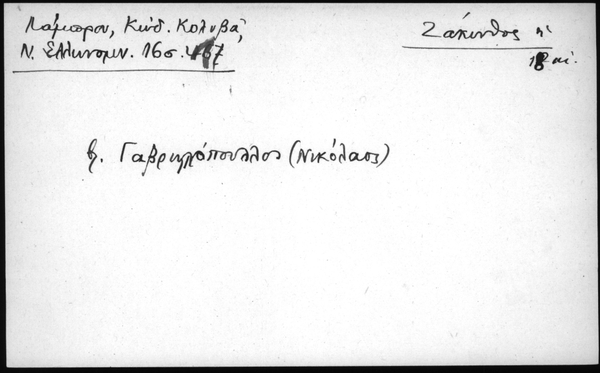 Λάμπρου, Κώδ. Κολυβᾶ,
Ν. Ἑλληνομν. 16 σ. 467
Ζάκυνθος
18 αἰ.
βλ. Γαβριηλόπουλλος (Νικόλαος)